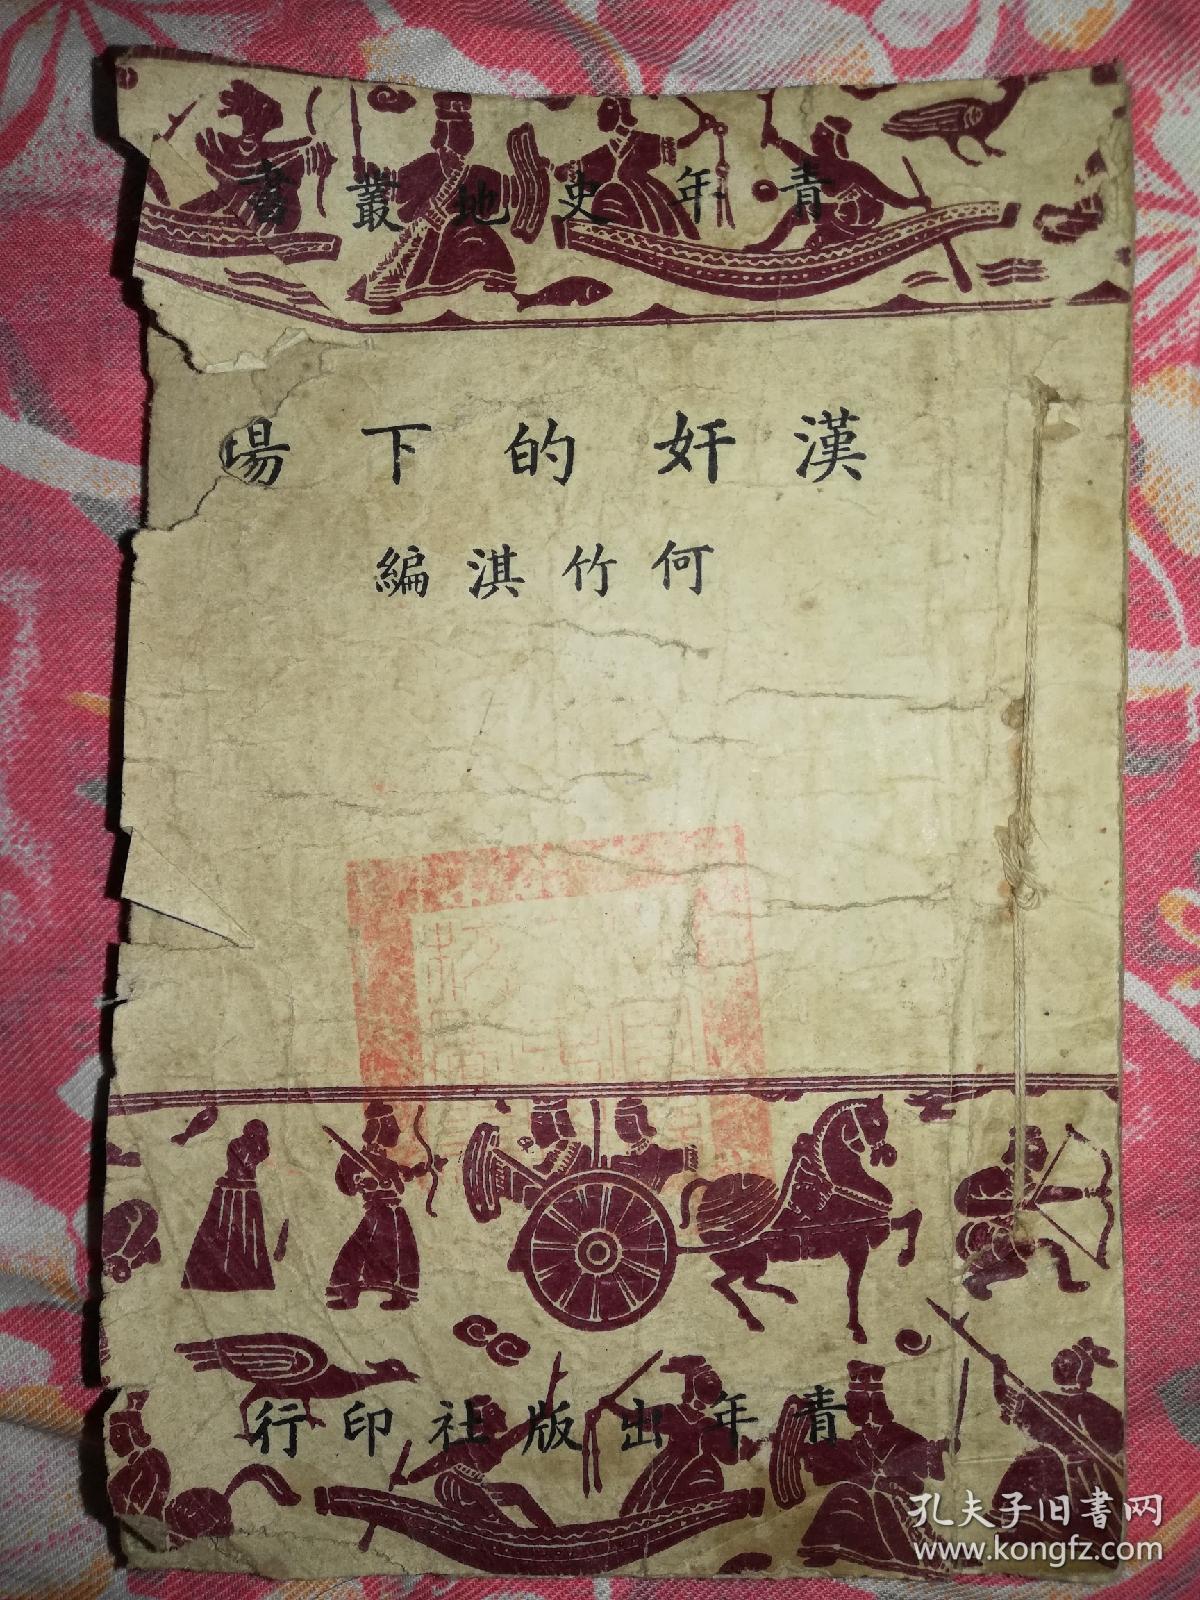 青年史地叢書
漢奸的下場
何竹淇編
青年出版社印行
孔夫子旧書网
www.kongfz.com